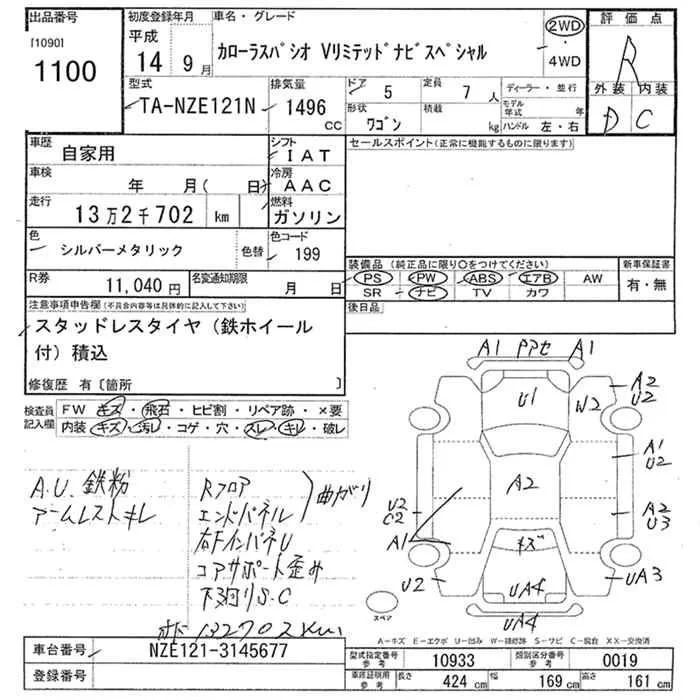 出品番号
[1090]
1100
初度登録年月
平成
14 9月
車名・グレード
カローラスパシオ Vリミテッドナビスペシャル
2WD
・
4WD
評価点
R
外装 内装
D C
型式
TA-NZE121N
排気量
1496
CC
ドア
5
定員
7人
形状
ワゴン
積載
kg
ディーラー・並行
モデル年式 年
ハンドル 左・右
車歴
自家用
シフト
IAT
車検
年 月( 日)
冷房
AAC
走行
13万2千702 km
燃料
ガソリン
色
シルバーメタリック
色替
色コード
199
R券
11,040円
名変通知期限
月 日
セールスポイント(正常に機能するものに限ります)
装備品(純正品に限り○をつけてください)
新車保証書
PS PW ABS エアB AW
SR ナビ TV カワ
有・無
後日品
注意事項申告欄(不具合内容等は具体的に記入して下さい)
スタッドレスタイヤ(鉄ホイール
付)積込
修復歴 有〔箇所 〕
検査員
記入欄
FW キズ・飛石・ヒビ割・リペア跡・×要
内装 キズ・汚レ・コゲ・穴・スレ・キレ・破レ
A.U. 鉄粉
アームレストキレ
Rフロア
エンドパネル
右下インパネU
コアサポート歪み
下廻りS.C
曲がり
オド 132702km
A1 PPアセ A1
U1
W2
A2
U2
A1
U2
A2
U2
C2
A1
A2
U3
キズ
U2
UA4
UA3
UA4
スペア
A-キズ E-エクボ U-凹み W-補修跡 S-サビ C-腐食 XX-交換済
車台番号
NZE121-3145677
登録番号
型式指定番号
参考
10933
類別区分番号
参考
0019
車庫証明用
参考
長さ
424 cm
幅
169 cm
高さ
161 cm